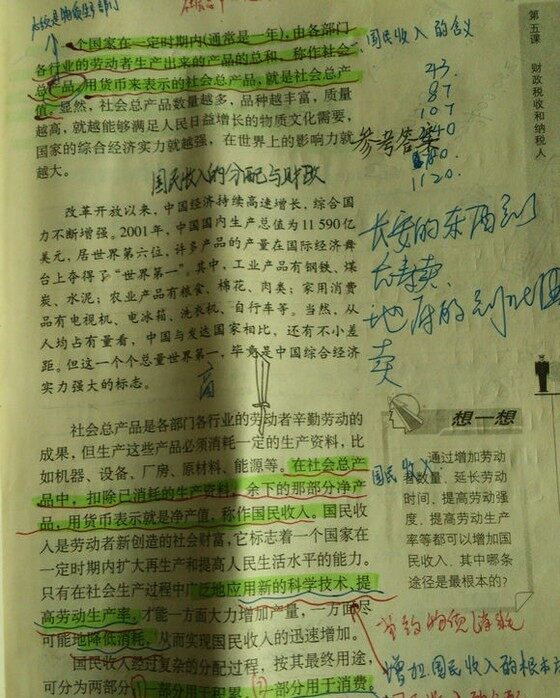 一个国家在一定时期内(通常是一年),由各部门
各行业的劳动者生产出来的产品的总和,称作社会
总产品,用货币来表示的社会总产品,就是社会总产
值。显然,社会总产品数量越多,品种越丰富,质量
越高,就越能够满足人民日益增长的物质文化需要,
国家的综合经济实力就越强,在世界上的影响力就
越大。
国民收入的含义
43.
87
107
参考答案
1120.
第五课
财政税收和纳税人
国民收入的分配与财政
改革开放以来,中国经济持续高速增长,综合国
力不断增强。2001年,中国国内生产总值为11590亿
美元,居世界第六位,许多产品的产量在国际经济舞
台上夺得了“世界第一”。其中,工业产品有钢铁、煤
炭、水泥;农业产品有粮食、棉花、肉类;家用消费
品有电视机、电冰箱、洗衣机、自行车等。当然,从
人均占有量看,中国与发达国家相比,还有不小差
距。但这一个个总量世界第一,毕竟是中国综合经济
实力强大的标志。
长安的东西到
卖
地府的到
卖
社会总产品是各部门各行业的劳动者辛勤劳动的
成果,但生产这些产品必须消耗一定的生产资料,比
如机器、设备、厂房、原材料、能源等。在社会总产
品中,扣除已消耗的生产资料,余下的那部分净产
品,用货币表示就是净产值,称作国民收入。国民收
入是劳动者新创造的社会财富,它标志着一个国家在
一定时期内扩大再生产和提高人民生活水平的能力。
只有在社会生产过程中广泛地应用新的科学技术,提
高劳动生产率,才能一方面大力增加产量,一方面尽
可能地降低消耗,从而实现国民收入的迅速增加。
国民收入经过复杂的分配过程,按其最终用途,
可分为两部分:一部分用于积累,一部分用于消费
国民收入
想一想
通过增加劳动
者数量、延长劳动
时间、提高劳动强
度、提高劳动生产
率等都可以增加国
民收入,其中哪条
途径是最根本的?
节约物质消耗
增加国民收入的根本